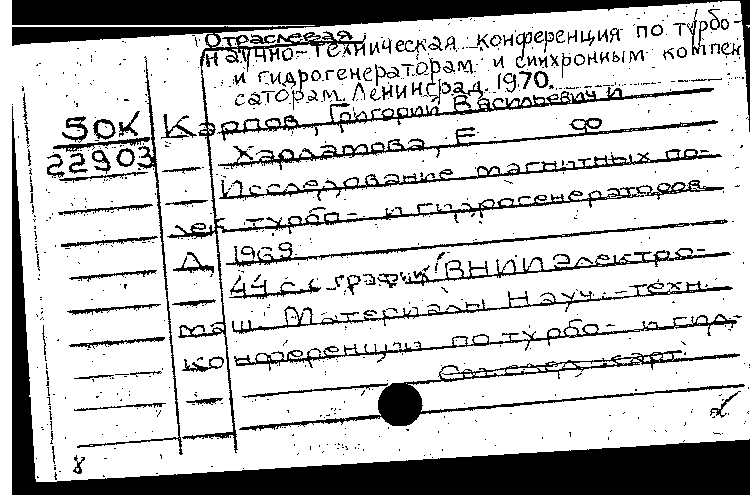 Отраслевая
научно-техническая конференция по турбо-
и гидрогенераторам и синхронным компен
саторам. Ленинград. 1970.
50К Карпов, Григорий Васильевич и
22903 Харламова, Е
Исследование магнитных по-
лей турбо- и гидрогенераторов.
Л, 1969
44 с. с график. (ВНИИэлектро-
маш. Материалы Науч.-техн.
конференции по турбо- и гид-
См. след. карт.
8
2